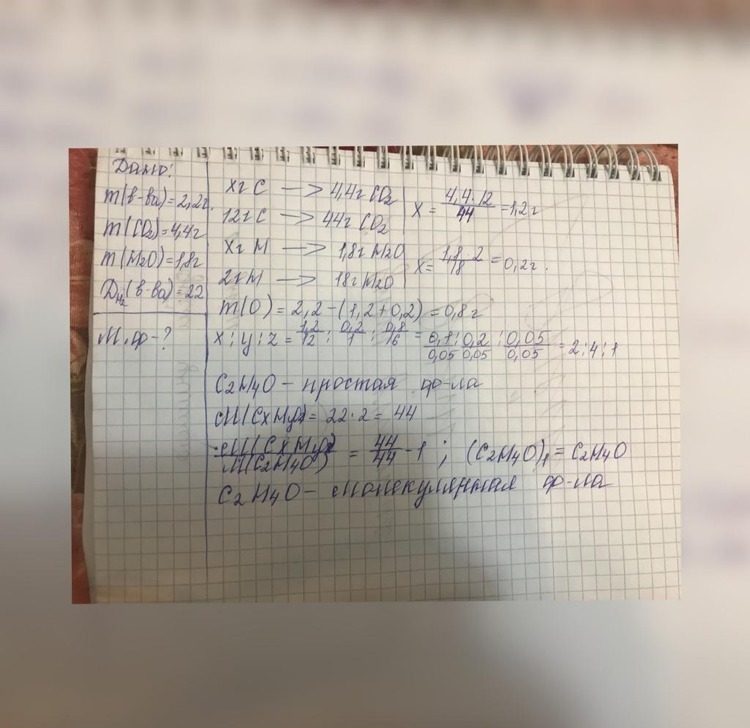 Дано:
m(в-ва)=2,2г.
m(CO2)=4,4г
m(H2O)=1,8г
DH2(в-ва)=22
М.ф-?
xг C —> 4,4г CO2
12г C —> 44г CO2
x = 4,4·12/44 = 1,2г
xг H —> 1,8г H2O
2г H —> 18г H2O
x = 1,8·2/18 = 0,2г.
m(O) = 2,2-(1,2+0,2) = 0,8г
x:y:z = 1,2/12 : 0,2/1 : 0,8/16 = 0,1/0,05 : 0,2/0,05 : 0,05/0,05 = 2:4:1
C2H4O - простая ф-ла
M(CxHyOz) = 22·2 = 44
M(CxHyOz)/M(C2H4O) = 44/44 = 1; (C2H4O)1 = C2H4O
C2H4O - молекулярная ф-ла